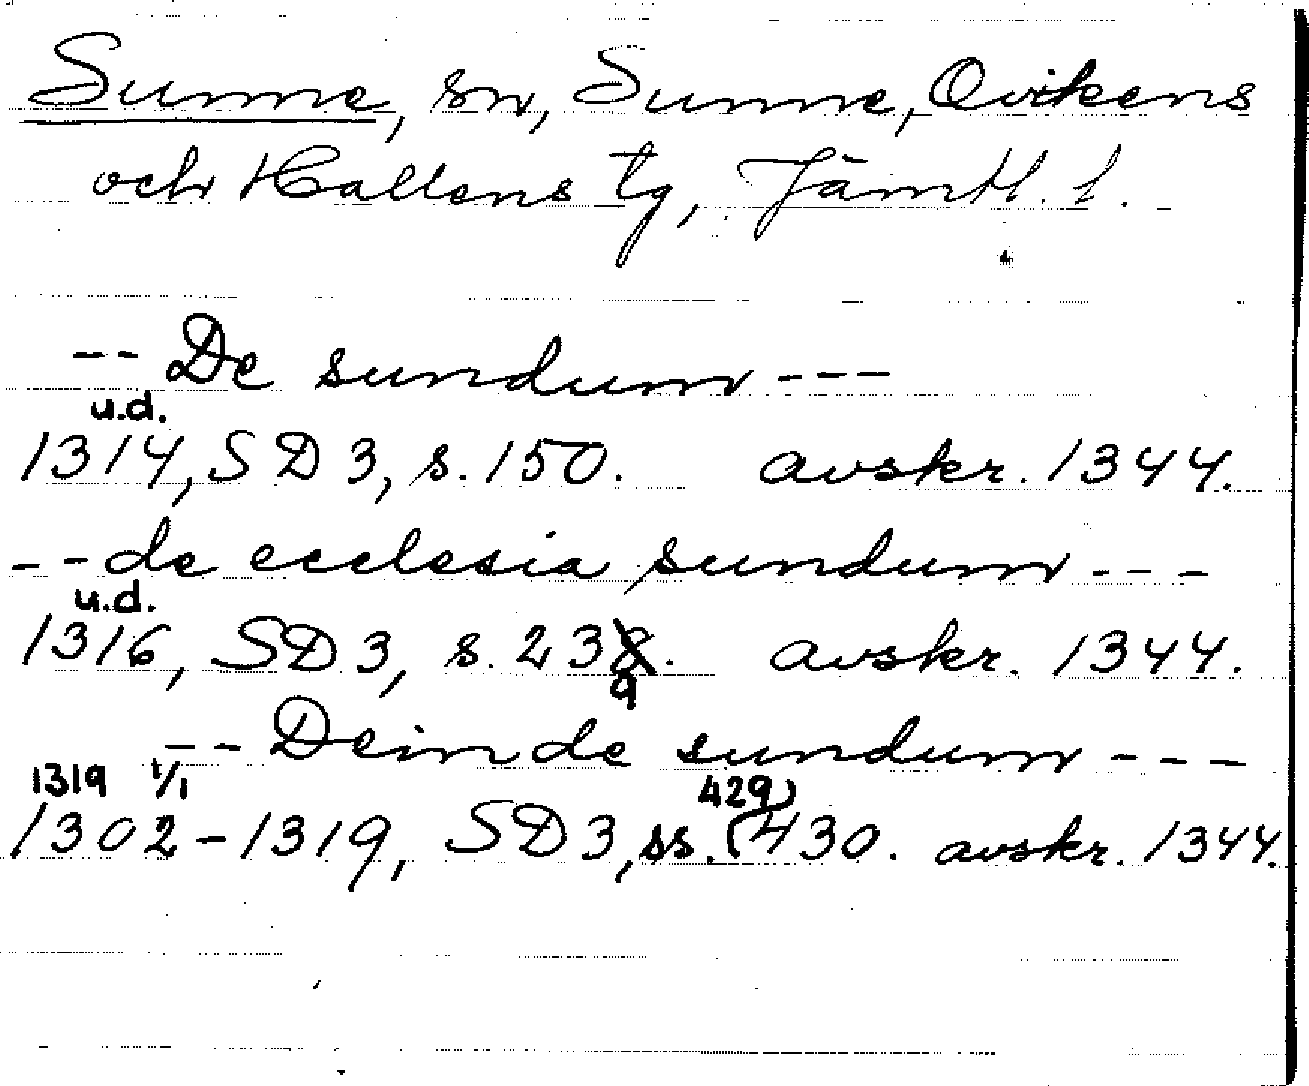 Sunne, sn, Sunne, Ovikens
och Hallens tg, Jämtl. l.
-- De sundum ---
u.d.
1314, SD 3, s. 150. avskr. 1344.
-- de ecclesia sundum ---
u.d.
1316, SD 3, s. 238. avskr. 1344.
9
-- Deinde sundum ---
1319 1/1 429)
1302-1319, SD 3, ss. (430. avskr. 1344.